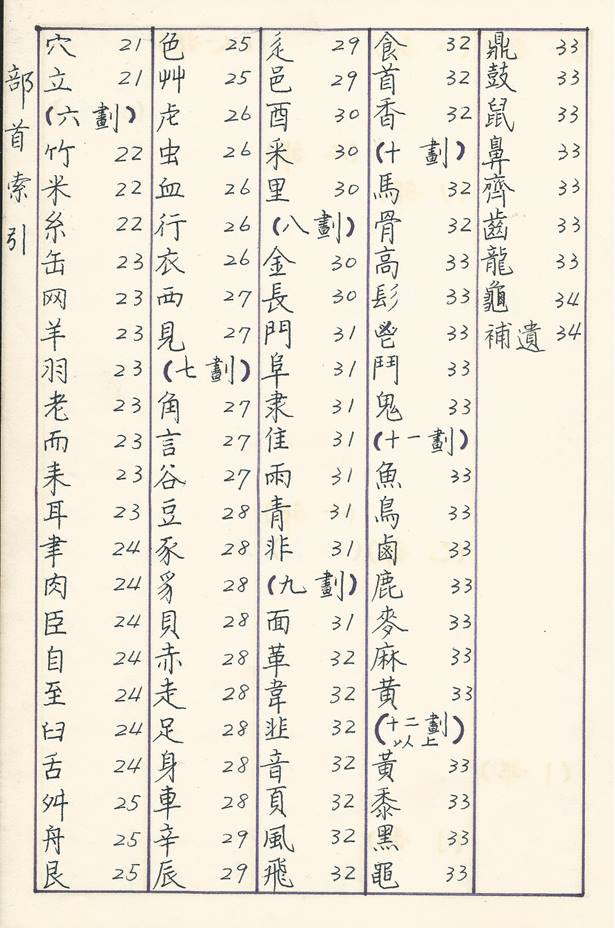 部首索引
穴 21
立 21
(六劃)
竹 22
米 22
糸 22
缶 23
网 23
羊 23
羽 23
老 23
而 23
耒 23
耳 23
聿 24
肉 24
臣 24
自 24
至 24
臼 24
舌 24
舛 25
舟 25
艮 25
色 25
艸 25
虍 26
虫 26
血 26
行 26
衣 26
襾 27
見 27
(七劃)
角 27
言 27
谷 27
豆 28
豕 28
豸 28
貝 28
赤 28
走 28
足 28
身 28
車 28
辛 29
辰 29
辵 29
邑 29
酉 30
釆 30
里 30
(八劃)
金 30
長 30
門 31
阜 31
隶 31
隹 31
雨 31
青 31
非 31
(九劃)
面 31
革 32
韋 32
韭 32
音 32
頁 32
風 32
飛 32
食 32
首 32
香 32
(十劃)
馬 32
骨 32
高 33
髟 33
鬯 33
鬥 33
鬼 33
(十一劃)
魚 33
鳥 33
鹵 33
鹿 33
麥 33
麻 33
黄 33
(十二劃以上)
黃 33
黍 33
黑 33
黽 33
鼎 33
鼓 33
鼠 33
鼻 33
齊 33
齒 33
龍 33
龜 34
補遺 34